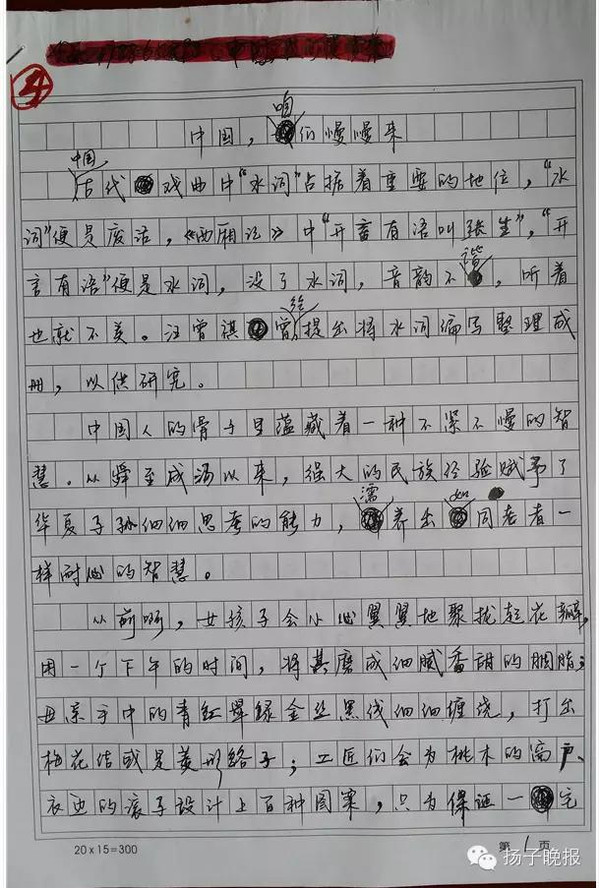 4
咱
中国，们慢慢来
中国
古代戏曲中“水词”占据着重要的地位，“水
词”便是废话，《西厢记》中“开言有语叫张生”，“开
谐
言有语”便是水词，没了水词，音韵不，听着
经
也就不美。汪曾祺曾提出将水词编写整理成
册，以供研究。
中国人的骨子里蕴藏着一种不紧不慢的智
慧。从舜至成汤以来，强大的民族经验赋予了
濡 如
华夏子孙细细思考的能力，养出同老者一
样耐心的智慧。
从前啊，女孩子会小心翼翼地聚拢起花瓣，
用一个下午的时间，将其磨成细腻香甜的胭脂；
母亲手中的青红翠绿金丝黑线细细缠绕，打出
梅花结或是菱形络子；工匠们会为桃木的窗户、
衣边的滚子设计上百种图案，只为保证一宅
20×15=300
第1页
扬子晚报